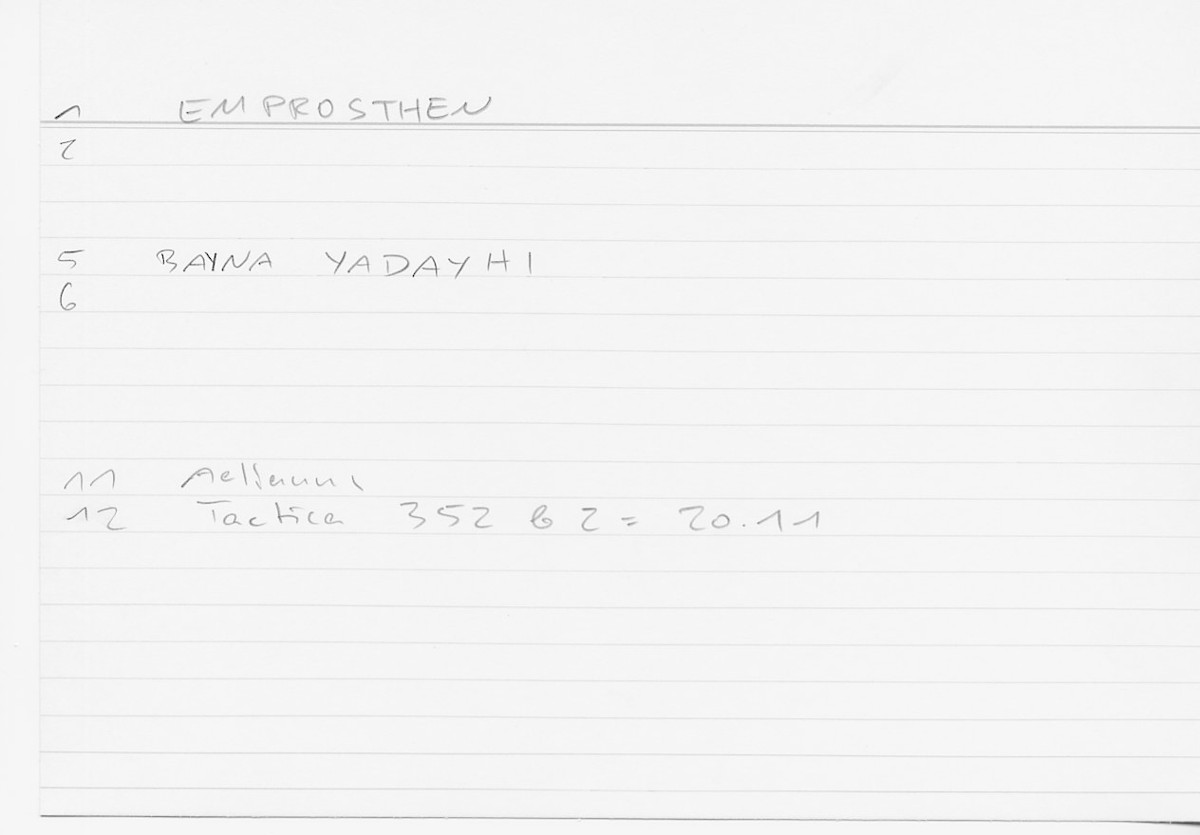 1 EMPROSTHEN
2
5 BAYNA YADAYHI
6
11 Aelianus
12 Tactica 352 b 2 = 20.11